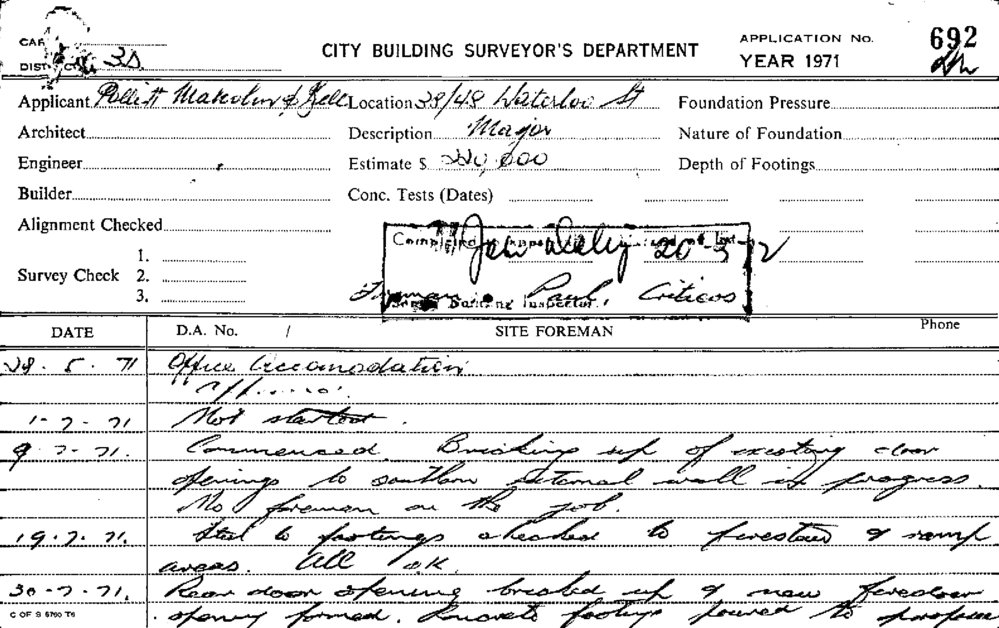 CITY BUILDING SURVEYOR'S DEPARTMENT
APPLICATION No. 692
YEAR 1971
Applicant Pollitt Malcolm & Location 38/48 Waterloo St Foundation Pressure
Architect Description Major Nature of Foundation
Engineer Estimate $ 220,000 Depth of Footings
Builder Conc. Tests (Dates)
Alignment Checked
1.
Survey Check 2.
3.
Completed 20-3-72
Foreman Paul Criticos
Building Inspector.
DATE D.A. No. / SITE FOREMAN Phone
28.5.71 Office Accomodation
1-7-71 Not started.
9.7-71. Commenced. Bricking up of existing door
openings to southern external wall in progress.
No foreman on the job.
19.7.71. Steel to footings checked to firestair & ramp
areas. All OK.
30-7-71. Rear door opening bricked up & new firedoor
opening formed. Concrete footings poured to
C OF S 5760 T6